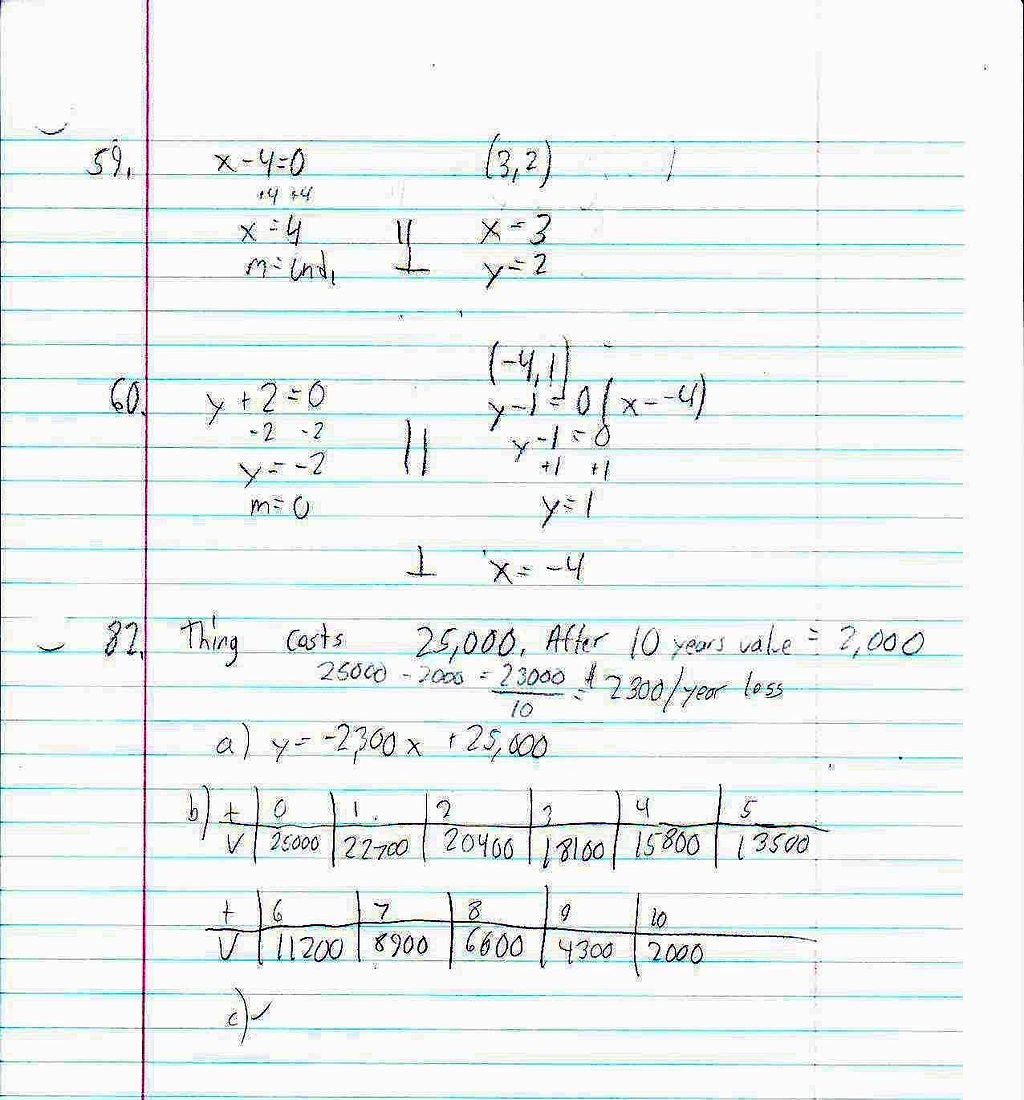 59. x-4=0 (3,2)
+4 +4
x=4 || x=3
m=Und. ⊥ y=2
(-4,1)
60. y+2=0 y-1=0(x--4)
-2 -2 || y-1=0
y=-2 +1 +1
m=0 y=1
⊥ x=-4
82. Thing costs 25,000. After 10 years value = 2,000
25000 - 2000 = 23000/10 = $2300/year loss
a) y=-2,300x +25,000
b) t 0 1 2 3 4 5
V 25000 22700 20400 18100 15800 13500
t 6 7 8 9 10
V 11200 8900 6600 4300 2000
c) ✓